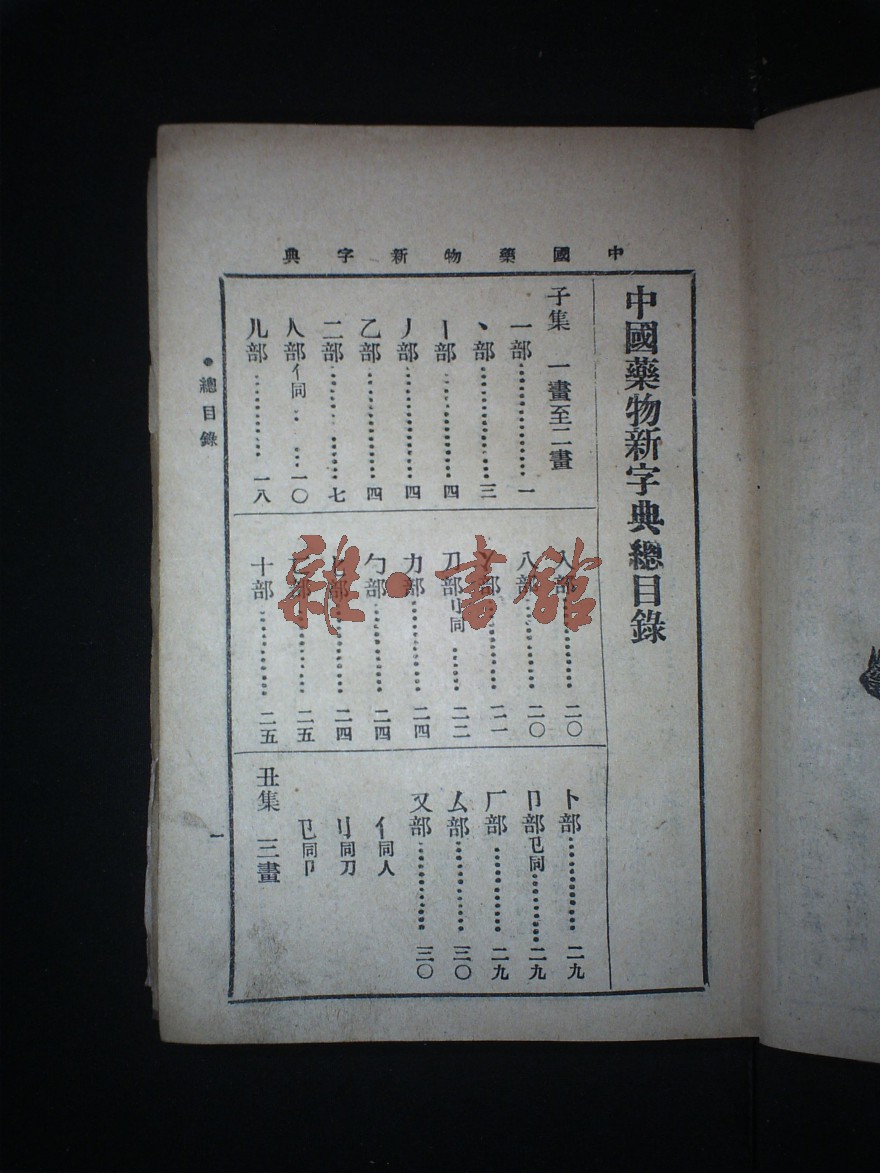 中國藥物新字典
中國藥物新字典總目錄
子集 一畫至二畫
一部…………一
丶部…………三
丨部…………四
丿部…………四
乙部…………四
二部…………七
人部亻同…………一〇
儿部…………一八
入部…………二〇
八部…………二〇
部…………二一
刀部刂同…………二二
力部…………二四
勹部…………二四
匕部…………二四
部…………二五
十部…………二五
卜部…………二九
卩部㔾同…………二九
厂部…………二九
厶部…………三〇
又部…………三〇
亻同人
刂同刀
㔾同卩
丑集 三畫
●總目錄
一
雜·書館